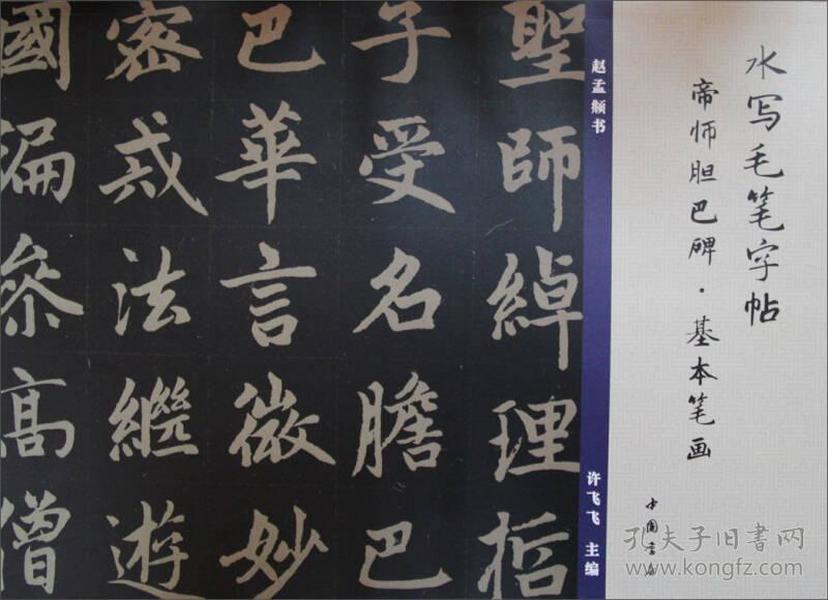 水写毛笔字帖
帝师胆巴碑·基本笔画
中国书店
赵孟頫书
许飞飞 主编
聖師綽理哲
子受名膽巴
巴華言微妙
密戒法繼遊
國徧參高僧
孔夫子旧书网
www.kongfz.com